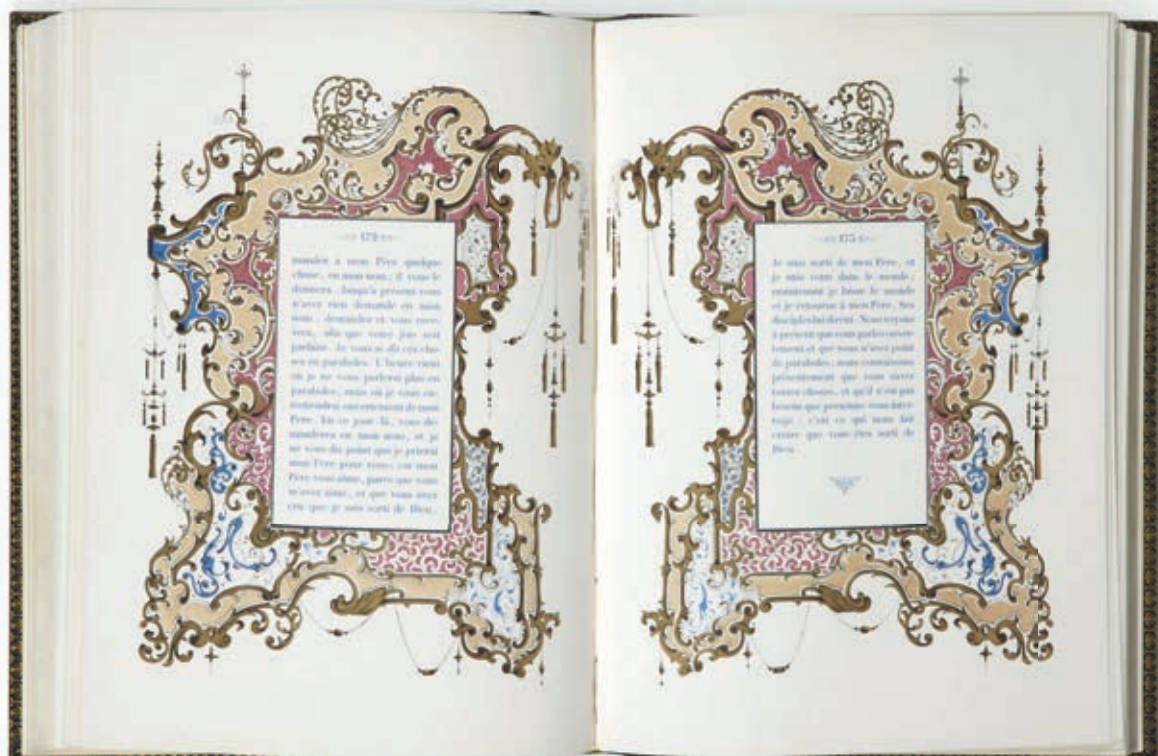 172
mander à mon Père quelque
chose, en mon nom, il vous le
donnera. Jusqu'à présent vous
n'avez rien demandé en mon
nom : demandez et vous rece-
vrez, afin que votre joie soit
parfaite. Je vous ai dit ces cho-
ses en paraboles. L'heure vient
où je ne vous parlerai plus en
paraboles, mais où je vous en-
tretiendrai ouvertement de mon
Père. En ce jour-là, vous de-
manderez en mon nom, et je
ne vous dis point que je prierai
mon Père pour vous; car mon
Père vous aime, parce que vous
m'avez aimé, et que vous avez
cru que je suis sorti de Dieu.
173
Je suis sorti de mon Père, et
je suis venu dans le monde;
maintenant je laisse le monde
et je retourne à mon Père. Ses
disciples lui dirent : Nous voyons
à présent que vous parlez ouver-
tement et que vous n'usez point
de paraboles; nous connaissons
présentement que vous savez
toutes choses, et qu'il n'est pas
besoin que personne vous inter-
roge : c'est ce qui nous fait
croire que vous êtes sorti de
Dieu.